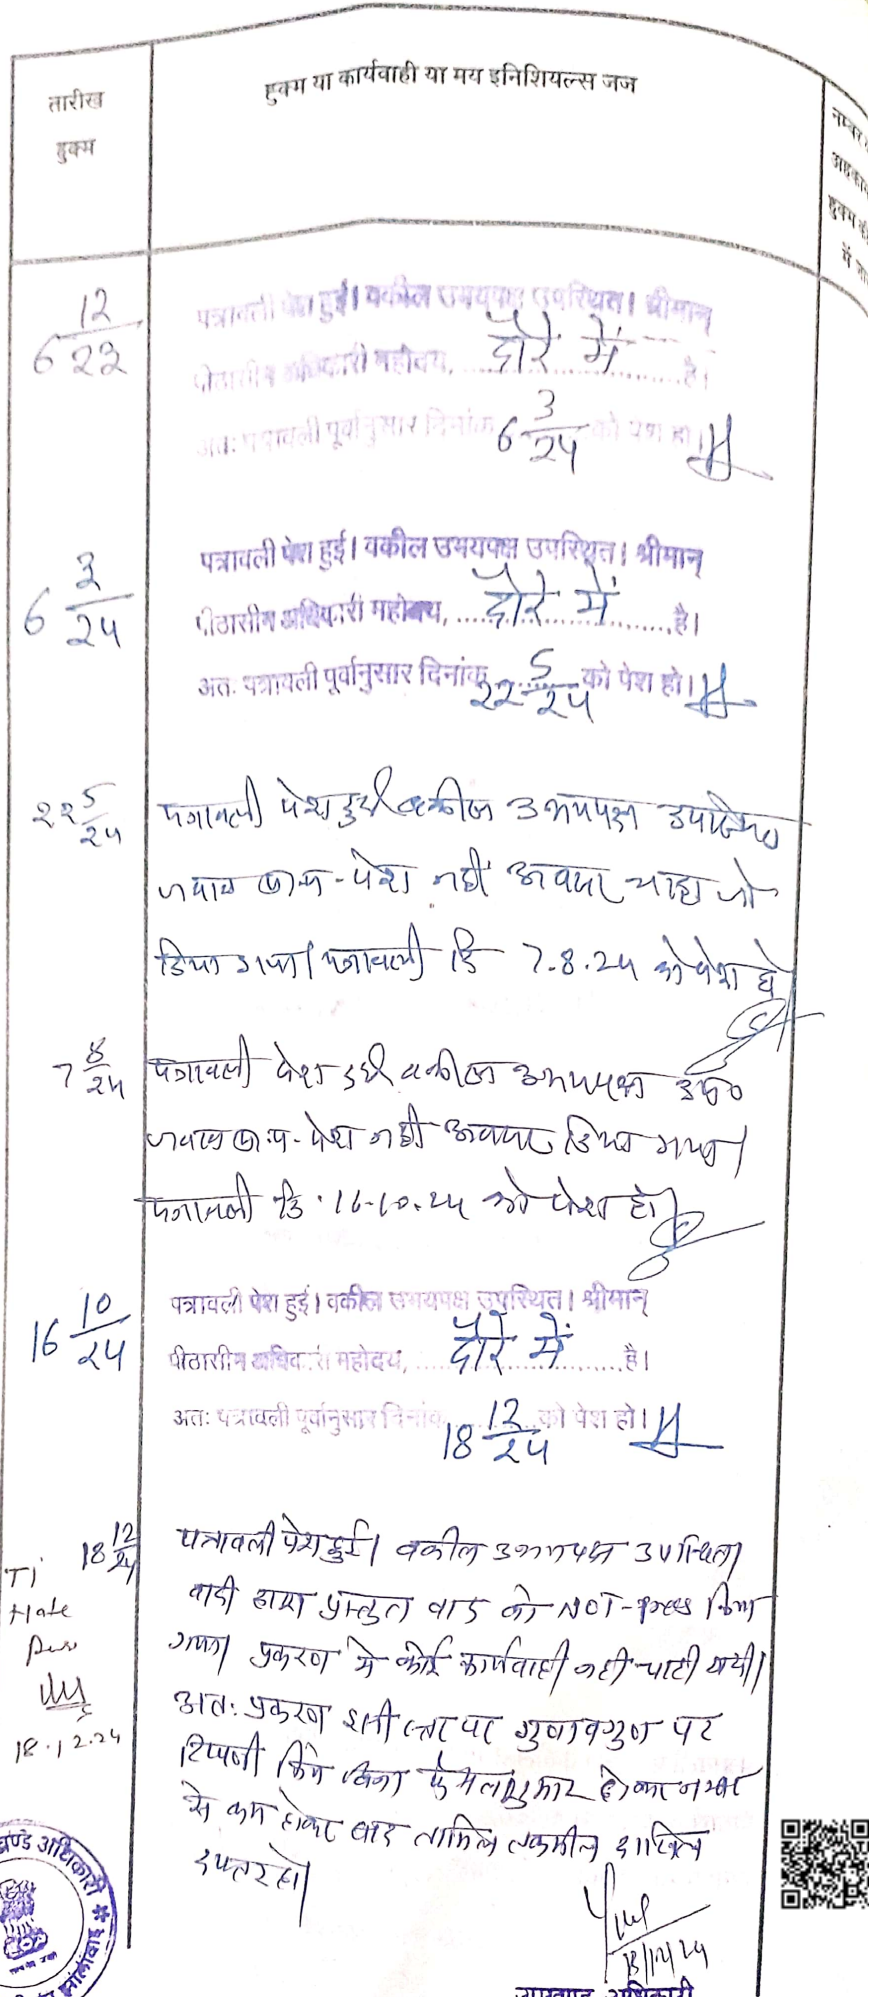 तारीख
हुक्म
हुक्म या कार्यवाही या मय इनिशियल्स जज
नम्बर
हुक्म की
में
6 12/23
पत्रावली पेश हुई। वकील उभयपक्ष उपस्थित। श्रीमान्
पीठासीन अधिकारी महोदय, दौरे में है।
अतः पत्रावली पूर्वानुसार दिनांक 6 3/24 को पेश हो।
6 3/24
पत्रावली पेश हुई। वकील उभयपक्ष उपस्थित। श्रीमान्
पीठासीन अधिकारी महोदय, दौरे में है।
अतः पत्रावली पूर्वानुसार दिनांक 22 5/24 को पेश हो।
22 5/24
पत्रावली पेश हुई वकील उभयपक्ष उपस्थित
जवाब पेश नहीं अवसर चाहा जो
दिया गया। पत्रावली दि 7.8.24 को पेश हो
7 8/24
पत्रावली पेश हुई वकील उभयपक्ष उप०
जवाब पेश नहीं अवसर दिया गया।
पत्रावली दि. 16-10.24 को पेश हो।
16 10/24
पत्रावली पेश हुई। वकील उभयपक्ष उपस्थित। श्रीमान्
पीठासीन अधिकारी महोदय, दौरे में है।
अतः पत्रावली पूर्वानुसार दिनांक 18 12/24 को पेश हो।
18 12/24
पत्रावली पेश हुई। वकील उभयपक्ष उपस्थित।
वादी द्वारा प्रस्तुत वाद को NOT-press किया
गया। प्रकरण में कोई कार्यवाही नहीं चाही गयी।
अतः प्रकरण इसी स्तर पर गुणावगुण पर
टिप्पणी किये बिना फैसलशुमार होकर नम्बर
से कम होकर बाद तामिल तकमील दाखिल
दफ्तर हो।
18.12.24
18/12/24
अधिकारी
उपखण्ड अधिकारी